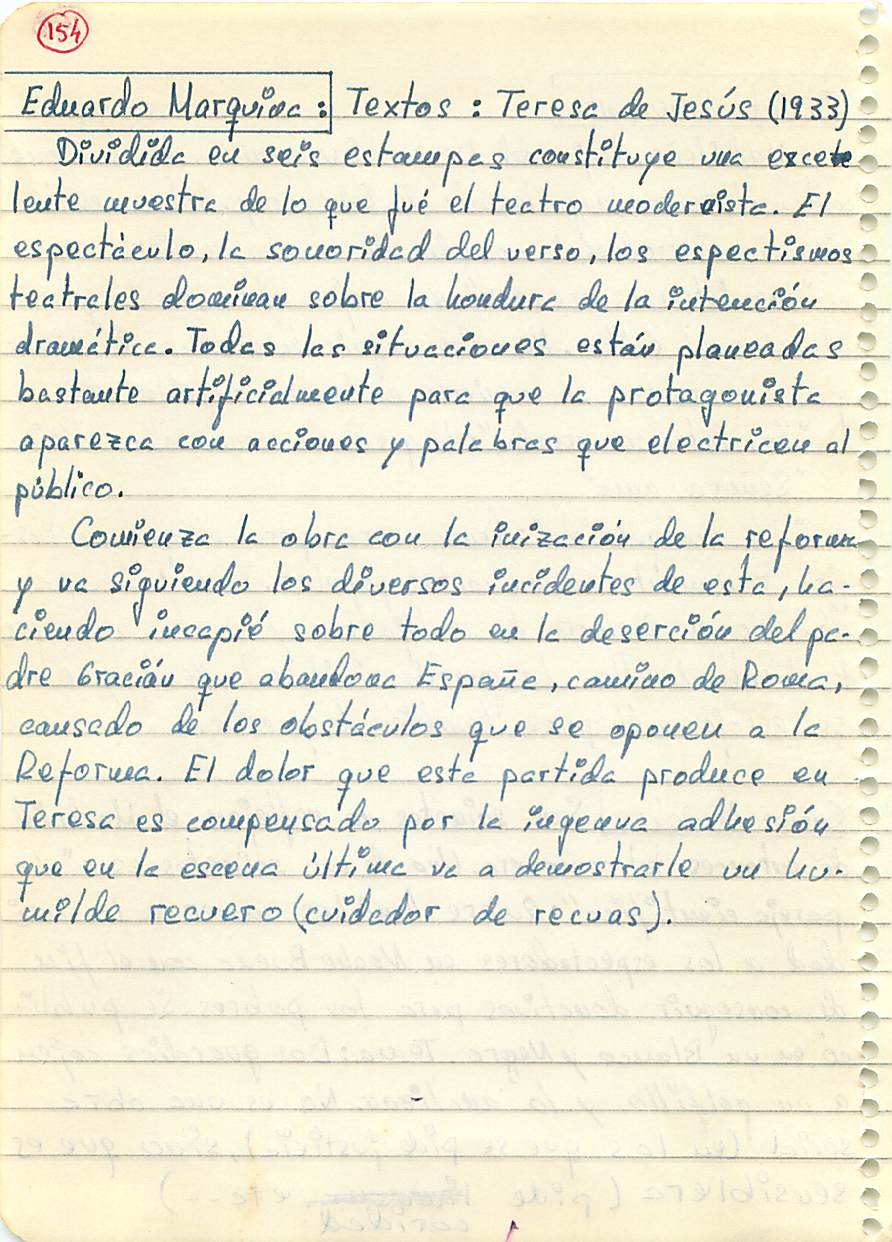 154
Eduardo Marquina: Textos: Teresa de Jesús (1933)
Dividida en seis estampas constituye una exce
lente muestra de lo que fué el teatro modernista. El
espectáculo, la sonoridad del verso, los espectismos
teatrales dominan sobre la hondura de la intención
dramática. Todas las situaciones están planeadas
bastante artificialmente para que la protagonista
aparezca con acciones y palabras que electricen al
público.
Comienza la obra con la inización de la reforma
y va siguiendo los diversos incidentes de esta, ha-
ciendo incapié sobre todo en la deserción del pa-
dre Gracián que abandona España, camino de Roma,
cansado de los obstáculos que se oponen a la
Reforma. El dolor que esta partida produce en
Teresa es compensado por la ingenua adhesión
que en la escena última va a demostrarle un hu-
milde recuero (cuidador de recuas).